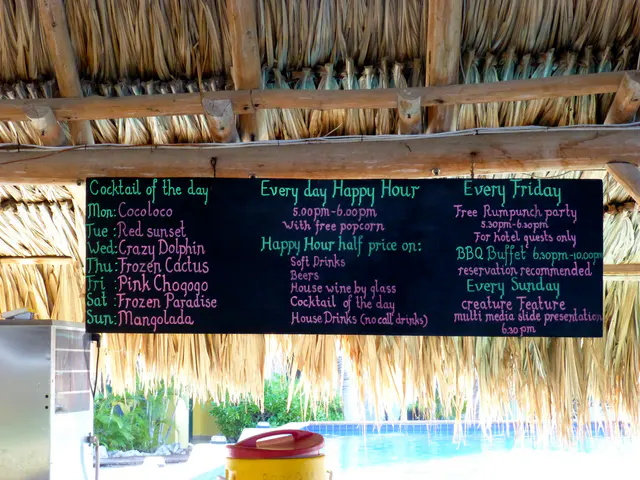 Cocktail of the day
Mon: Cocoloco
Tue: Red sunset
Wed: Crazy Dolphin
Thu: Frozen Cactus
Fri: Pink Chogogo
Sat: Frozen Paradise
Sun: Mangolada
Every day Happy Hour
5.00pm-6.00pm
With free popcorn
Happy Hour half price on:
Soft Drinks
Beers
House wine by glass
Cocktail of the day
House Drinks (no call drinks)
Every Friday
Free Rumpunch party
5.30pm-6.30pm
For hotel guests only
BBQ Buffet 6.30pm-10.00pm
reservation recommended
Every Sunday
creature Feature
multi media slide presentation
6.30pm